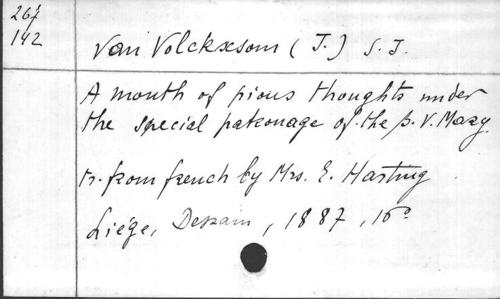 267
142
Van Volckxsom (J.) S. J.
A month of pious thoughts under
the special patronage of the B. V. Mary
tr. from french by Mrs. E. Harting
Liége, Dessain, 1887, 16°